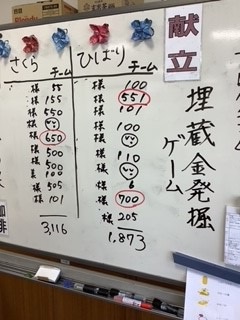 献立
埋蔵金発掘
ゲーム
さくらチーム
様 55
様 155
様 550
様
様 650
様 500
様 500
様 100
様 505
様 101
3,116
ひばりチーム
様 100
様 551
様 101
様 100
様
様 110
様
様 6
様 700
様 205
1,873